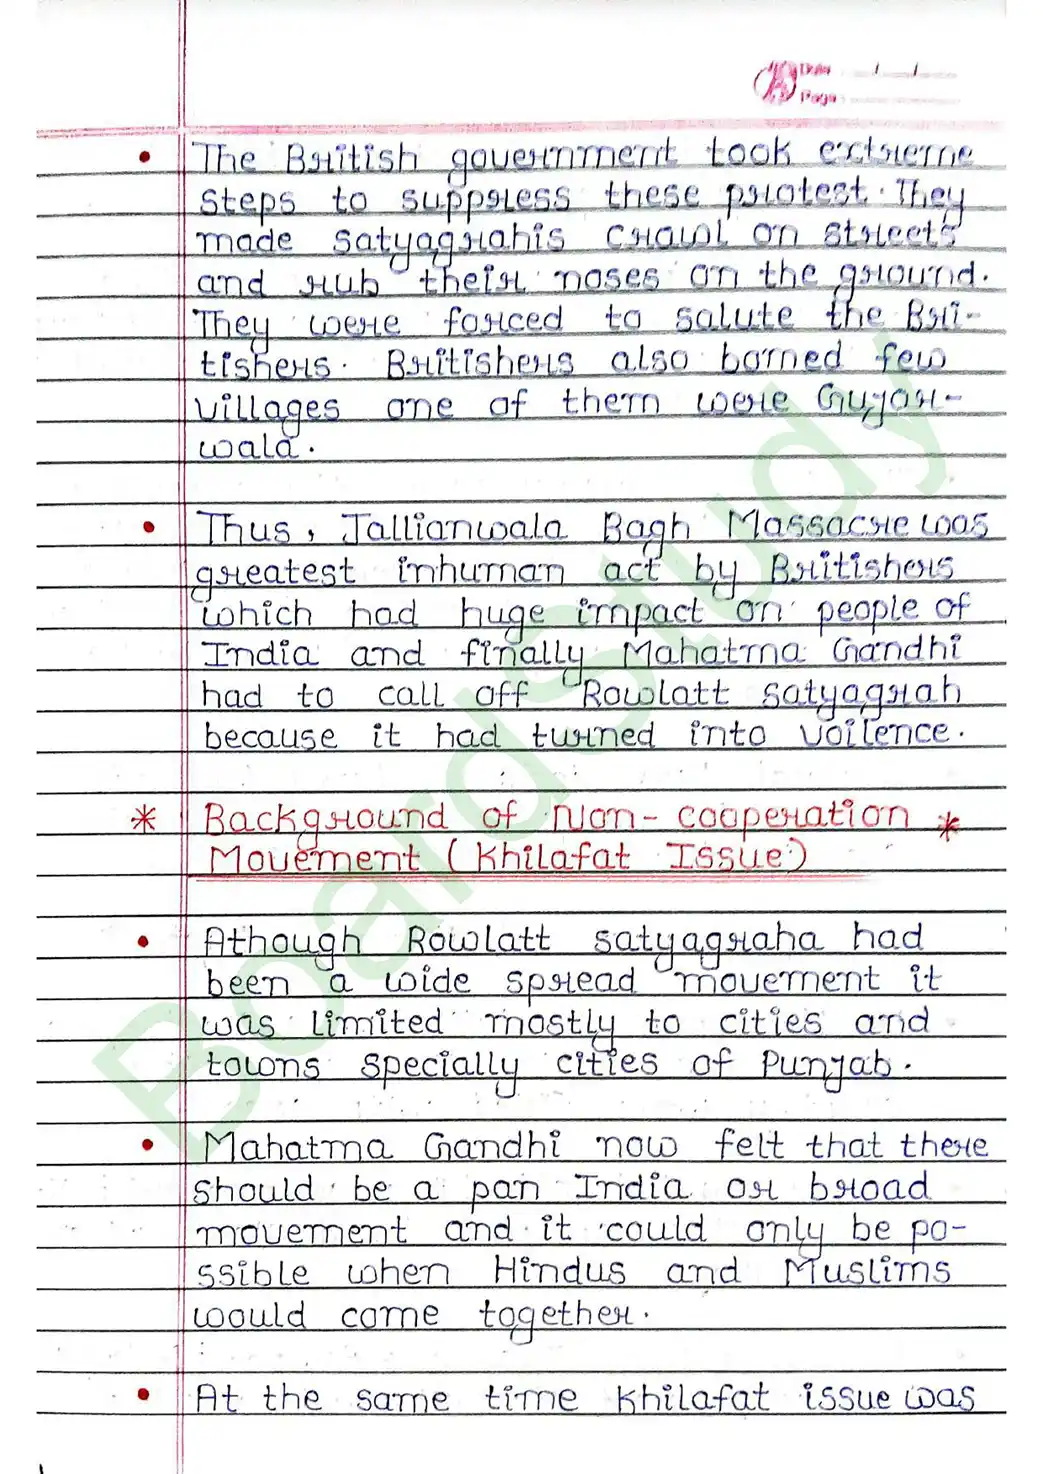 Date
Page
• The British government took extreme
steps to suppress these protest. They
made satyagrahis crawl on streets
and rub their noses on the ground.
They were forced to salute the Bri-
tishers. Britishers also borned few
villages one of them were Gujar-
wala.
• Thus, Jallianwala Bagh Massacre was
greatest inhuman act by Britishers
which had huge impact on people of
India and finally Mahatma Gandhi
had to call off Rowlatt satyagrah
because it had turned into voilence.
* Background of Non-cooperation *
Movement (Khilafat Issue)
• Athough Rowlatt satyagraha had
been a wide spread movement it
was limited mostly to cities and
towns specially cities of Punjab.
• Mahatma Gandhi now felt that there
should be a pan India or broad
movement and it could only be po-
ssible when Hindus and Muslims
would come together.
• At the same time Khilafat issue was
BoardStudy